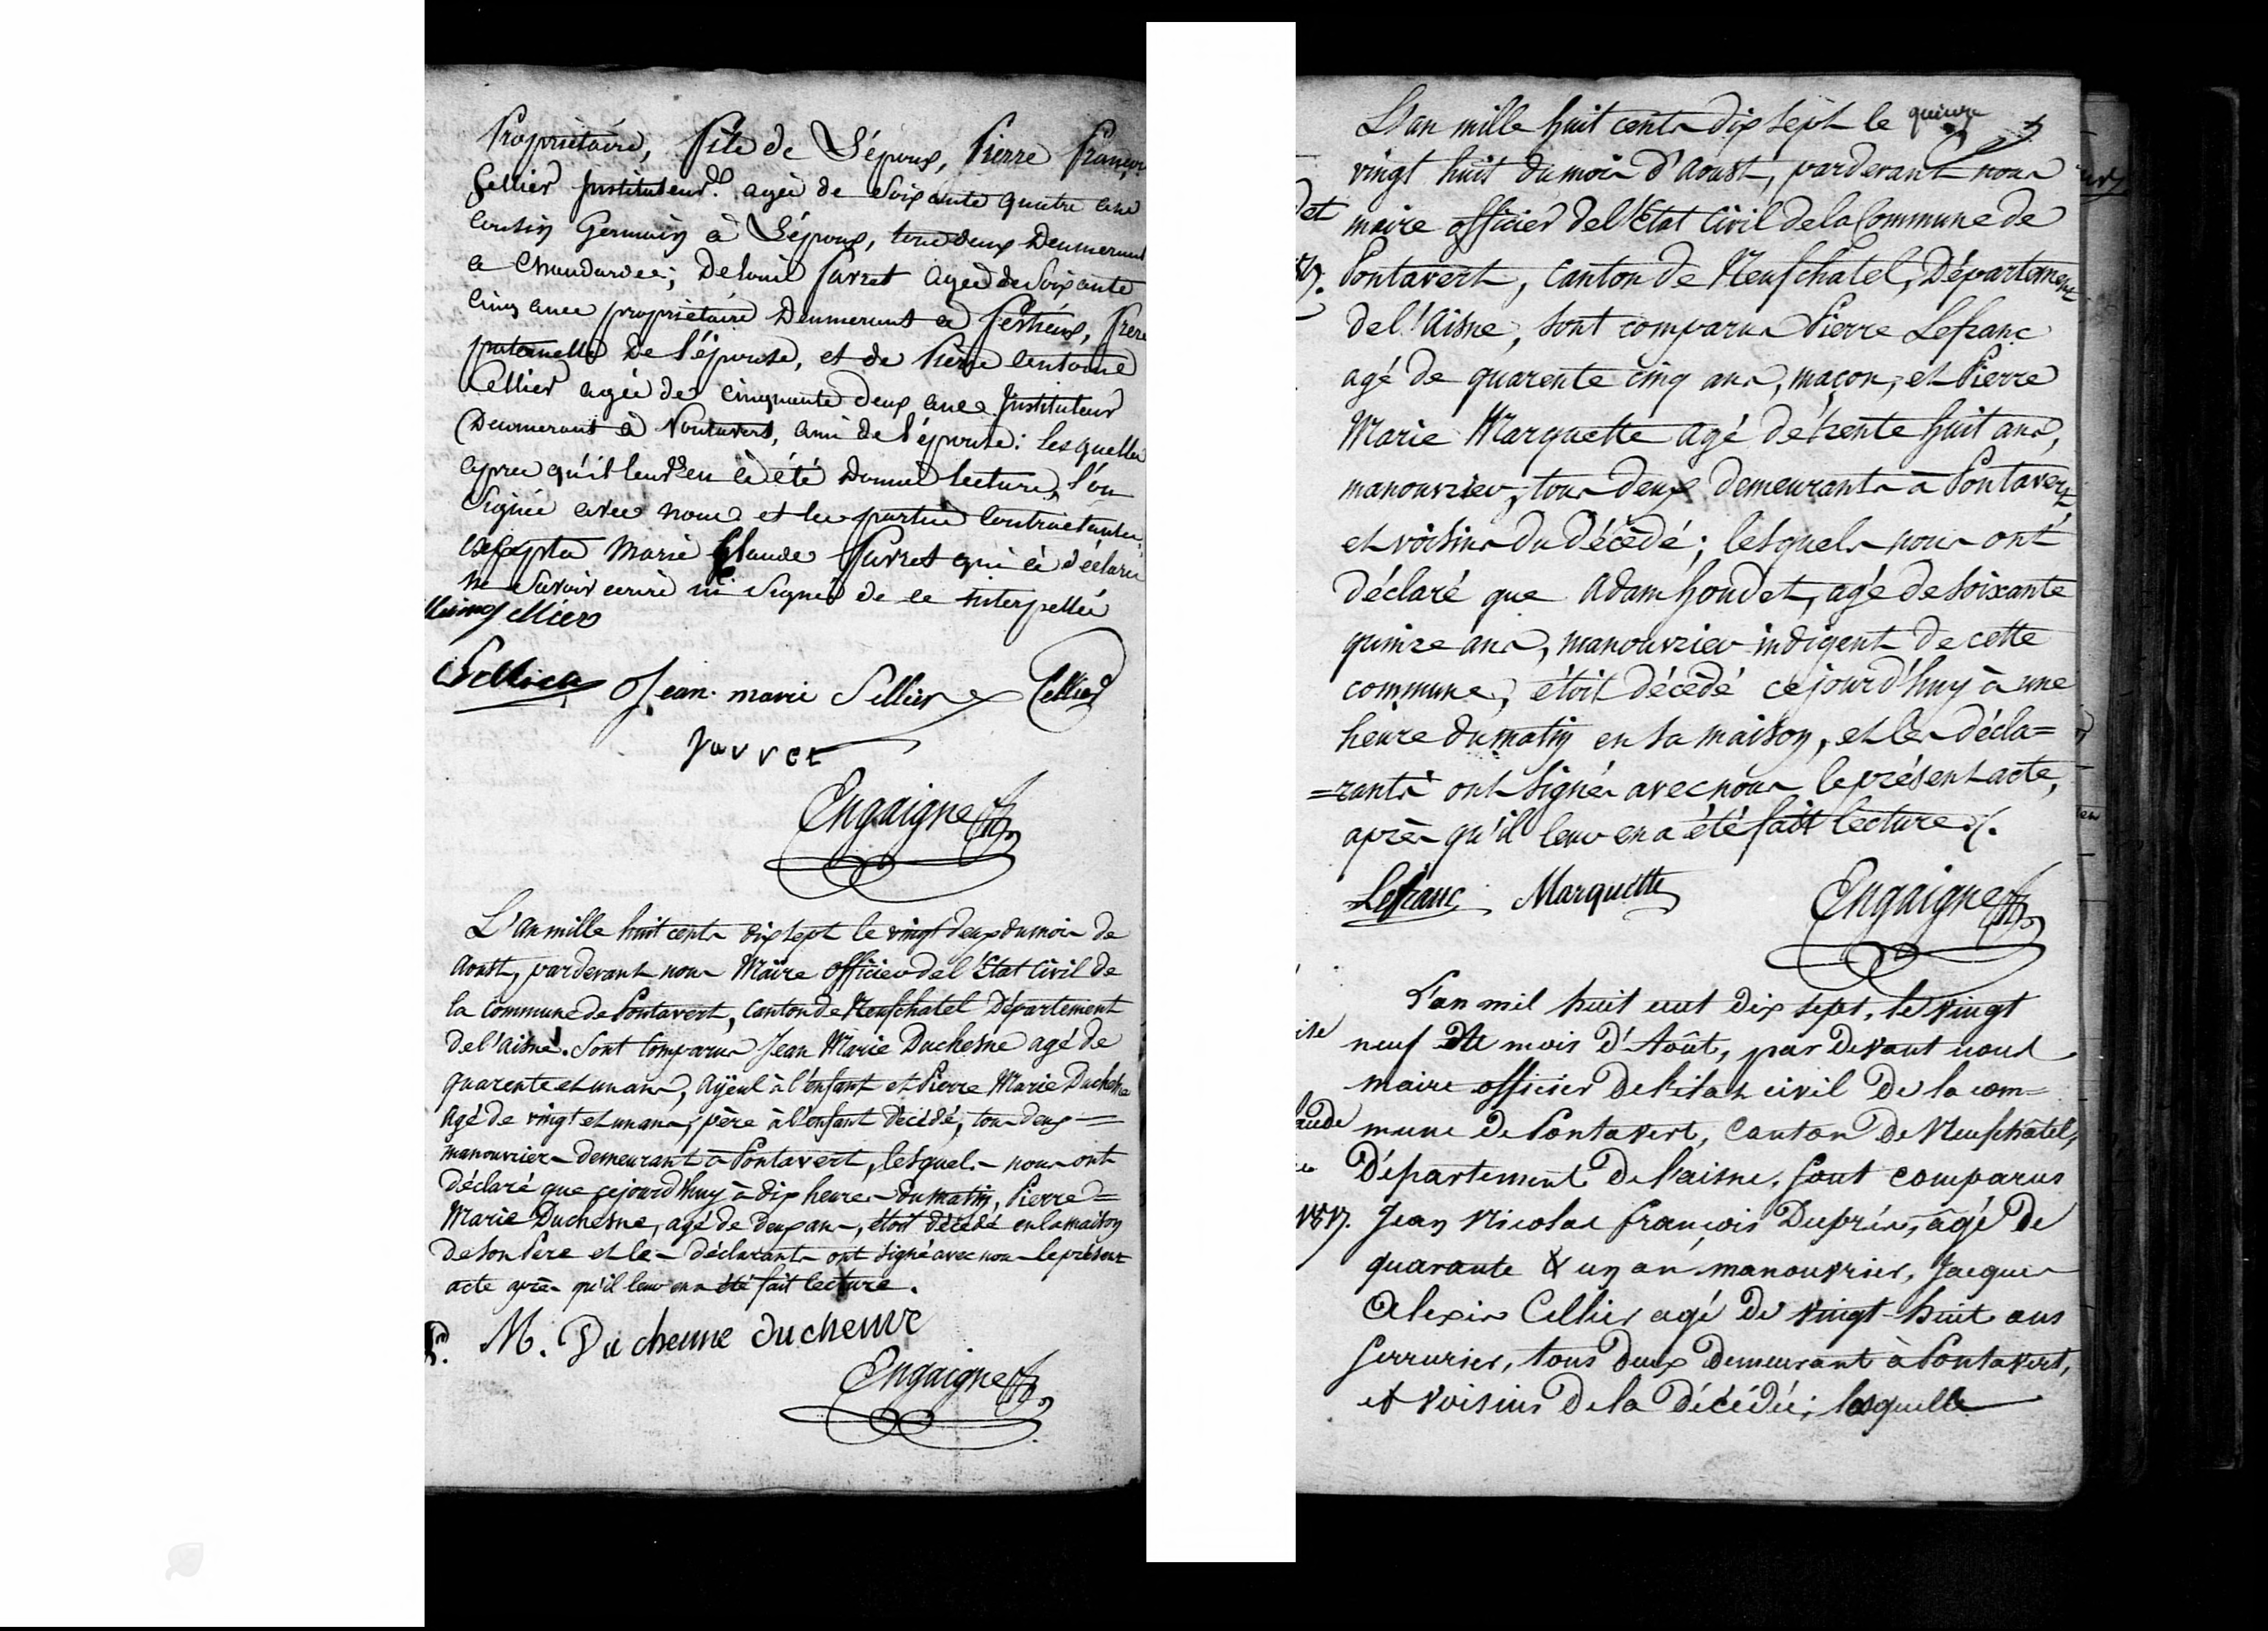 Propriétaire, fils de L'époux, Pierre françois
Cellier Instituteur agée de Soixante quatre ans
Cousin Germain à L'époux, tous deux Demeurant
a Chaudardes; De Louis Parret agée de Soixante
Cinq ans propriétaire Demeurant a festieux, frere
paternelle De l'épouse, et de Pierre antoine
Cellier agée de cinquante deux ans Instituteur
Demeurant à Pontavert, ami de l'épouse: lesquelles
apres qu'il leur en à été Donné lecture, l'on
Signée avec nous et les parties Contractantes,
excepta Marie Claude Parret qui à déclaré
ne Savoir ecrire ni Signer de ce interpellée
Cellier Jean marie Sellier Cellier
parret
Engaigne
L'an mille huit cents dix sept le vingt deux du mois de
Aoust, pardevant nous Maire officier del'Etat Civil de
la Commune de Pontavert, Canton de Neufchatel Département
del'aisne. Sont Comparus Jean Marie Duchesne agé de
quarente et un ans, ayeul à l'enfant et Pierre Marie Duchesne
agé de vingt et un ans, père à l'enfant décédé, tous deux =
manouvriers demeurant à Pontavert, lesquels nous ont
Déclaré que cejourd'huy à dix heures du matin, Pierre =
Marie Duchesne, agé de deux ans, étoit décédé en la maison
de son Pere et les déclarants ont signé avec nous le présent
acte après qu'il leur en a été fait lecture.
P. M. Du chenne duchenne
Engaigne
L'an mille huit cents dix sept le quinze
vingt huit du mois d'Aoust, pardevant nous
maire officier del'Etat Civil de la Commune de
Pontavert, Canton de Neufchatel, Département
del'Aisne, sont comparus Pierre Lefranc
agé de quarente cinq ans, maçon, et Pierre
Marie Marquette agé de trente huit ans,
manouvrier, tous deux demeurants à Pontavert,
et voisins du décédé; lesquels nous ont
déclaré que Adam houdet, agé de soixante
quinze ans, manouvrier indigent de cette
commune, étoit décédé cejourd'huy à une
heure du matin en sa maison, et les décla=
=rants ont signés avec nous le présent acte,
après qu'il leur en a été fait lecture.
Lefranc Marquette
Engaigne
L'an mil huit cent dix sept, le vingt
neuf du mois D'Août, par Devant nous
maire officier De l'état civil De la com=
mune De Pontavert, Canton De Neufchâtel,
Département De l'aisne, sont comparus
Jean Nicolas françois Duprés, âgé De
quarante & un an manouvrier, Jacques
Alexis Cellier agé De vingt-huit ans
serrurier, tous deux Demeurant à Pontavert,
et voisins De la Décédée; lesquelle